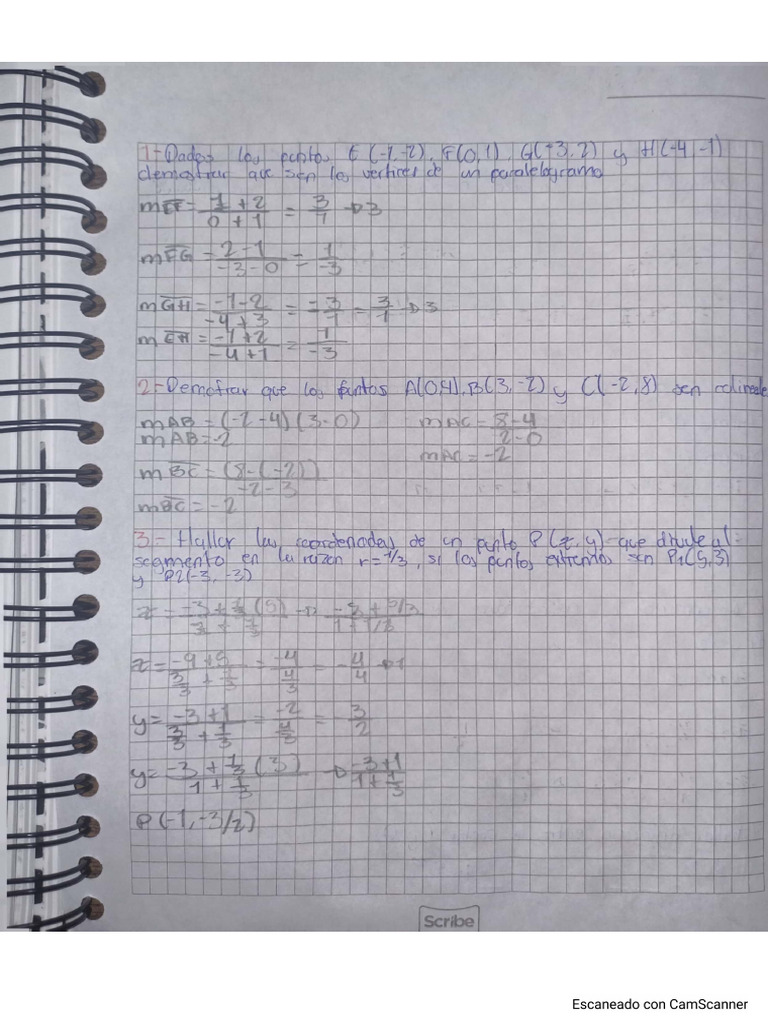 1-Dados los puntos E (-1,-2), F(0,1), G(-3,2) y H(-4 -1)
demostrar que sen los vertices de un paralelogramo
mEF = 1 + 2 / 0 + 1 = 3/1 → 3
mFG = 2 - 1 / -3 - 0 = 1/-3
mGH = -1-2 / -4+3 = -3/1 = 3/1 → 3
mEH = -1+2 / -4+1 = 1/-3
2-Demostrar que los puntos A(0,4), B(3,-2) y C(-2,8) sen
mAB = (-2-4)(3-0) mAC = 8-4 / 2-0
mAB=-2 mAC = -2
mBC = (8-(-2)) / -2-3
mBC = -2
3.- Hallar las coordenadas de un punto P(x,y) que divide al
segmento en la razon r=1/3, si los puntos extremos sen P1(5,3)
y P2(-3,-3)
x = -3 + 1/3 (5) → -3 + 5/3 / 1+1/3
x = -9+5 / 3/3 + 1/3 = -4 / 4/3 = -4/4 → 1
y = -3+1 / 3/3 + 1/3 = -2 / 4/3 = 3/2
y = -3 + 1/3 (3) / 1 + 1/3 → -3+1 / 1+1/3
P(-1,-3/2)
Scribe
Escaneado con CamScanner